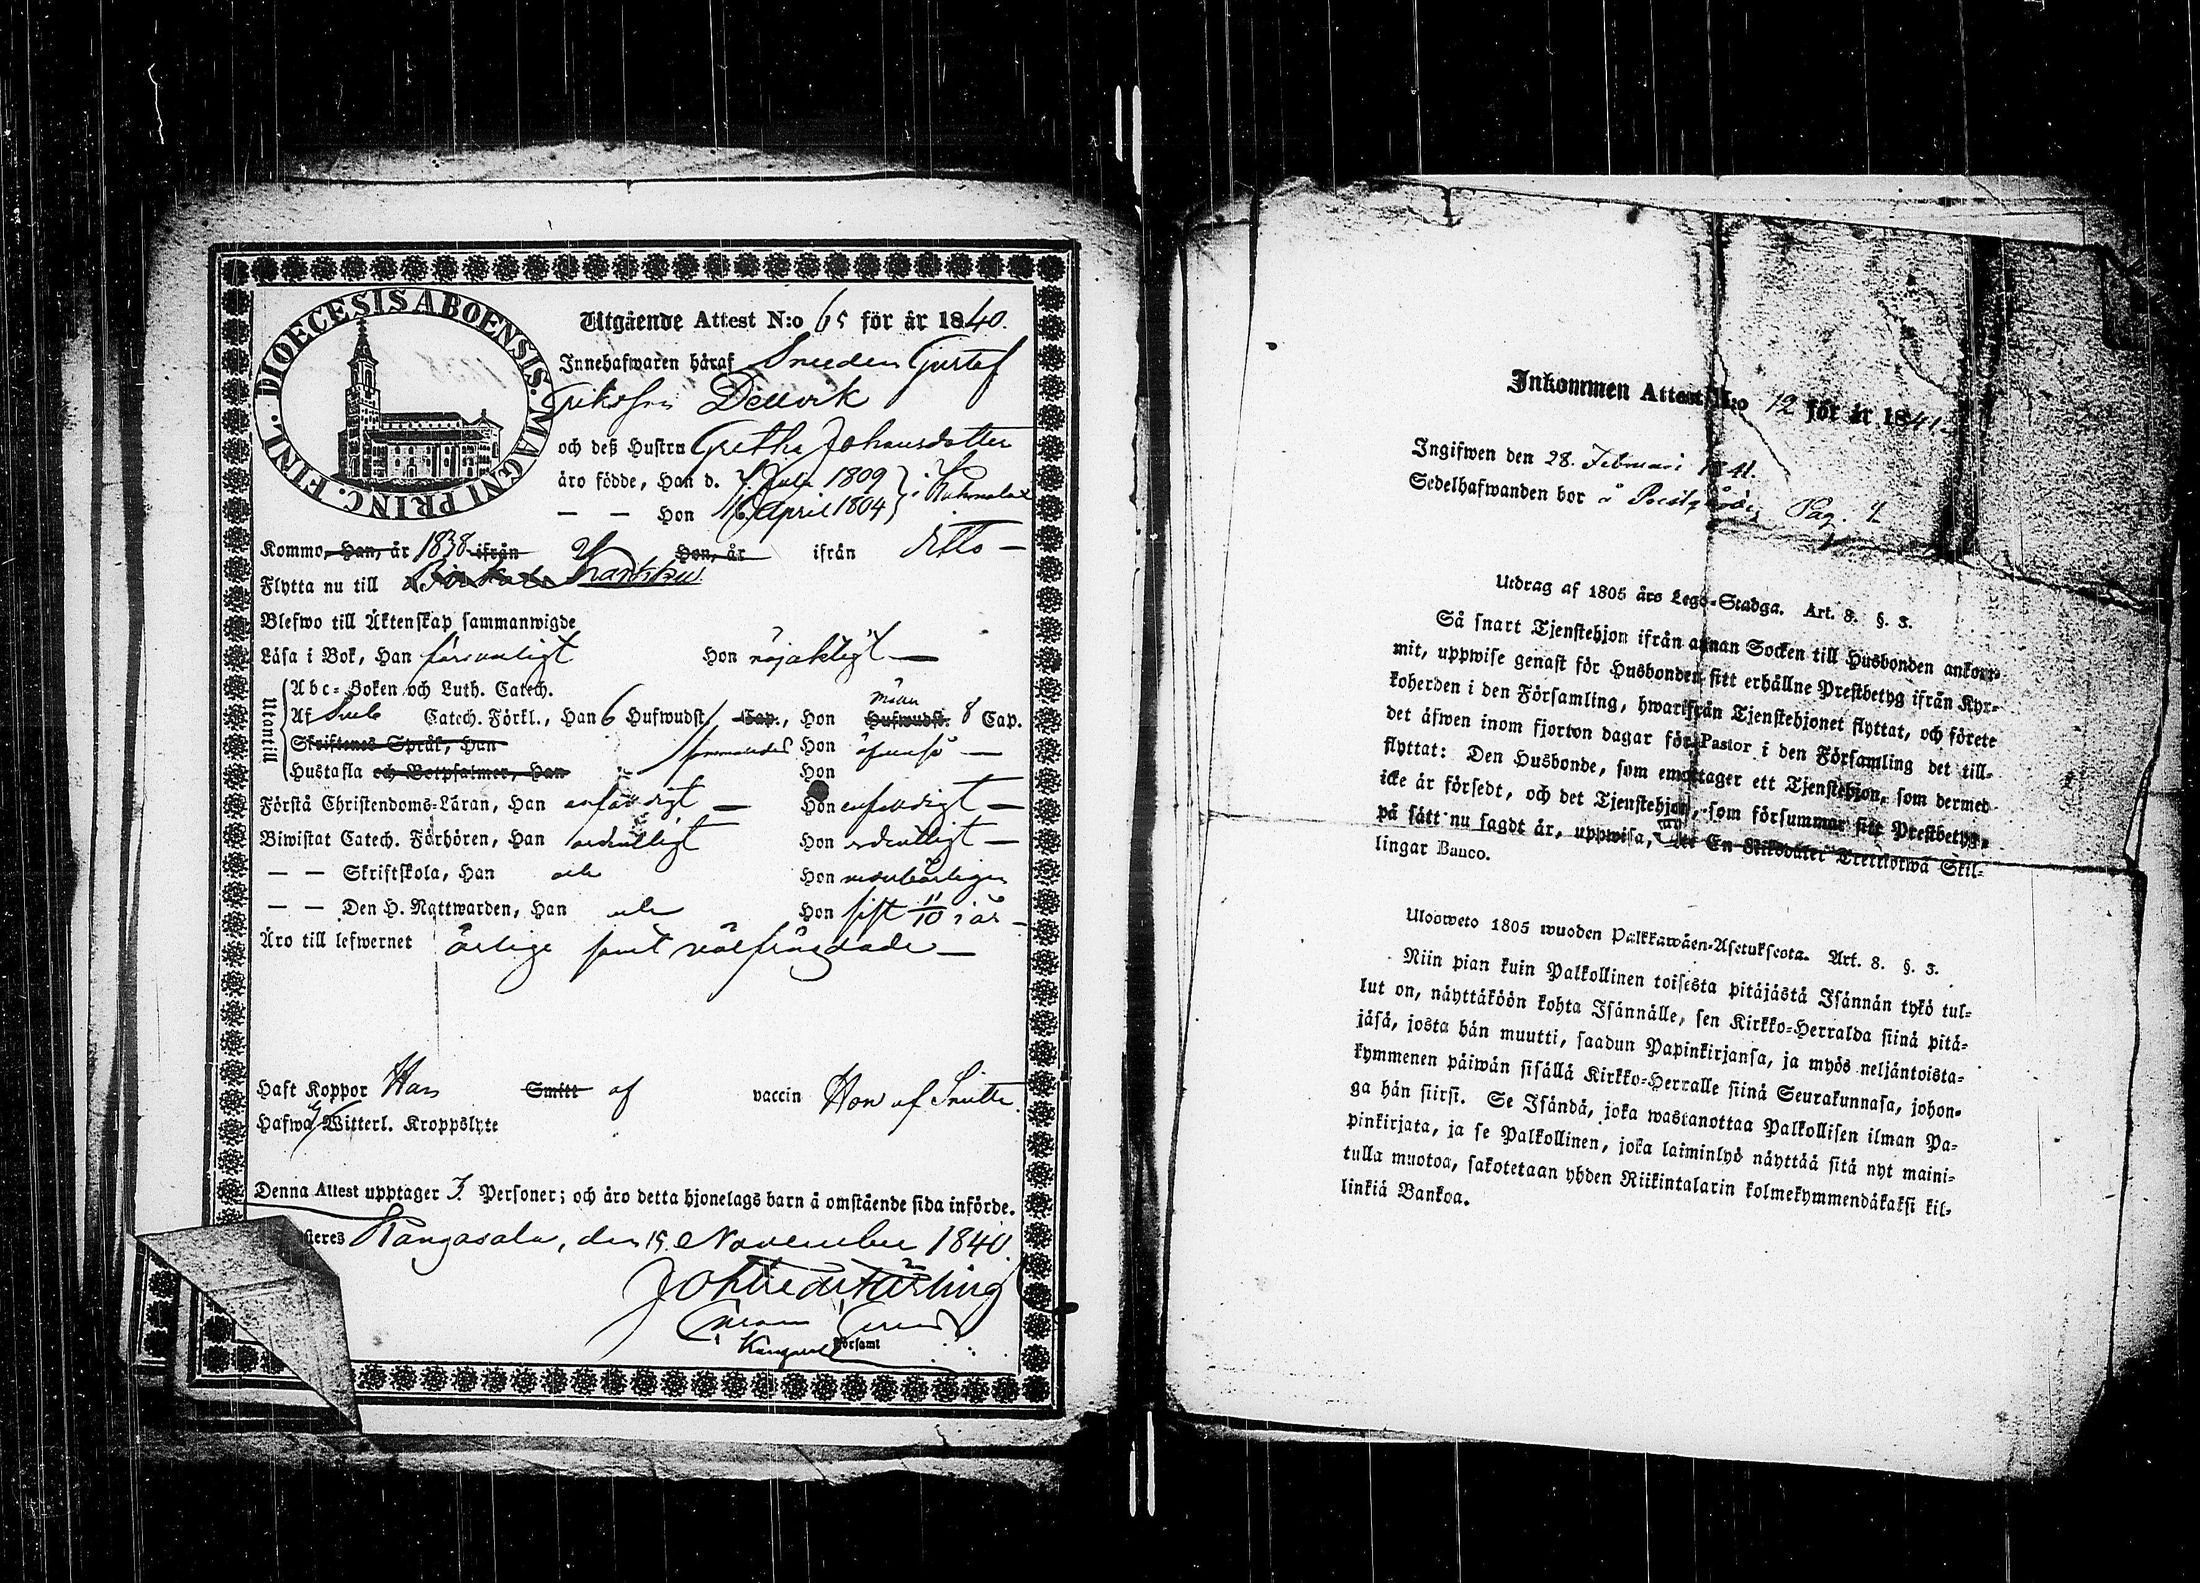 DIOECESIS ABOENSIS. MAGNI PRINC. FINL.
Utgående Attest N:o 65 för år 1840.
Innehafwaren häraf Smeden Gustaf
Eriksson Dellvik
och deß Hustru Gretha Johansdotter
äro födde, Han d. 4 Julii 1809
— — Hon 16 April 1804 } i
Kommo, Han, år 1838 ifrån Hon, år ifrån ditto —
Flytta nu till Karkku
Blefwo till Äktenskap sammanwigde
Läsa i Bok, Han försvarligt Hon nöjaktigt —
Utantill
Abc-Boken och Luth. Catech.
Af Sveb. Catech. Förkl., Han 6 Hufwudst. Cap., Hon Hufwudst. 8 Cap.
Skriftenes Språk, Han Hon
Hustafla och Botpsalmer, Han Hon
Förstå Christendoms-Läran, Han enfaldigt — Hon enfaldigt —
Biwistat Catech. Förhören, Han ordentligt Hon ordentligt —
— — Skriftskola, Han och Hon
— — Den H. Nattwarden, Han Hon sist 11/10 i år —
Äro till lefwernet ärlige samt välfrägdade —
Haft Koppor Han Smitt af vaccin Hon af Smitta.
Hafwa Witterl. Kroppslyte
Denna Attest upptager 3. Personer; och äro detta hjonelags barn å omstående sida införde.
Kangasala, den 15 November 1840.
Församl
Inkommen Attest N:o 12 för år 1841.
Ingifwen den 28. Februari 1841.
Sedelhafwanden bor å Pag. 1
Utdrag af 1805 års Lego-Stadga. Art. 8. §. 3.
Så snart Tjenstehjon ifrån annan Socken till Husbonden ankom-
mit, uppwise genast för Husbonden sitt erhällne Prestbetyg ifrån Kyr-
koherden i den Församling, hwarifrån Tjenstehjonet flyttat, och förete
det äfwen inom fjorton dagar för Pastor i den Församling det till-
flyttat: Den Husbonde, som emottager ett Tjenstehjon, som dermed
icke är försedt, och det Tjenstehjon, som försummar sitt Prestbetyg,
på sätt nu sagdt är, uppwisa, En Riksdaler Trettiotwå Skil-
lingar Banco.
Ulosweto 1805 wuoden Palkkawäen-Asetuksesta. Art. 8. §. 3.
Niin pian kuin Palkollinen toisesta pitäjästä Isännän tykö tul-
lut on, näyttäköön kohta Isännälle, sen Kirkko-Herralda siinä pitä-
jäsä, josta hän muutti, saadun Papinkirjansa, ja myös neljäntoista-
kymmenen päiwän sisällä Kirkko-Herralle siinä Seurakunnasa, johon-
ga hän siirsi. Se Isändä, joka wastanottaa Palkollisen ilman Pa-
pinkirjata, ja se Palkollinen, joka laiminlyö näyttää sitä nyt maini-
tulla muotoa, sakotetaan yhden Riikintalarin kolmekymmendäkaksi kil-
linkiä Bankoa.